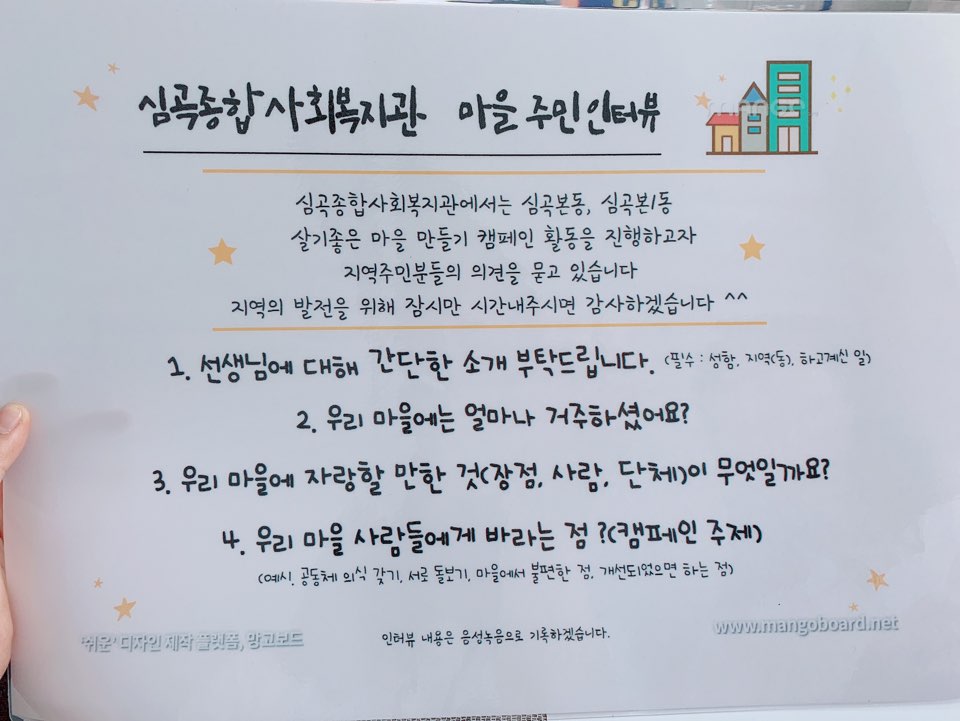 심곡종합사회복지관 마을 주민인터뷰
심곡종합사회복지관에서는 심곡본동, 심곡본1동
살기좋은 마을 만들기 캠페인 활동을 진행하고자
지역주민분들의 의견을 묻고 있습니다
지역의 발전을 위해 잠시만 시간내주시면 감사하겠습니다 ^^
1. 선생님에 대해 간단한 소개 부탁드립니다. (필수 : 성함, 지역(동), 하고계신 일)
2. 우리 마을에는 얼마나 거주하셨어요?
3. 우리 마을에 자랑할 만한 것(장점, 사람, 단체)이 무엇일까요?
4. 우리 마을 사람들에게 바라는 점 ?(캠페인 주제)
(예시. 공동체 의식 갖기, 서로 돌보기, 마을에서 불편한 점, 개선되었으면 하는 점)
'쉬운' 디자인 제작 플랫폼, 망고보드
인터뷰 내용은 음성녹음으로 기록하겠습니다.
www.mangoboard.net